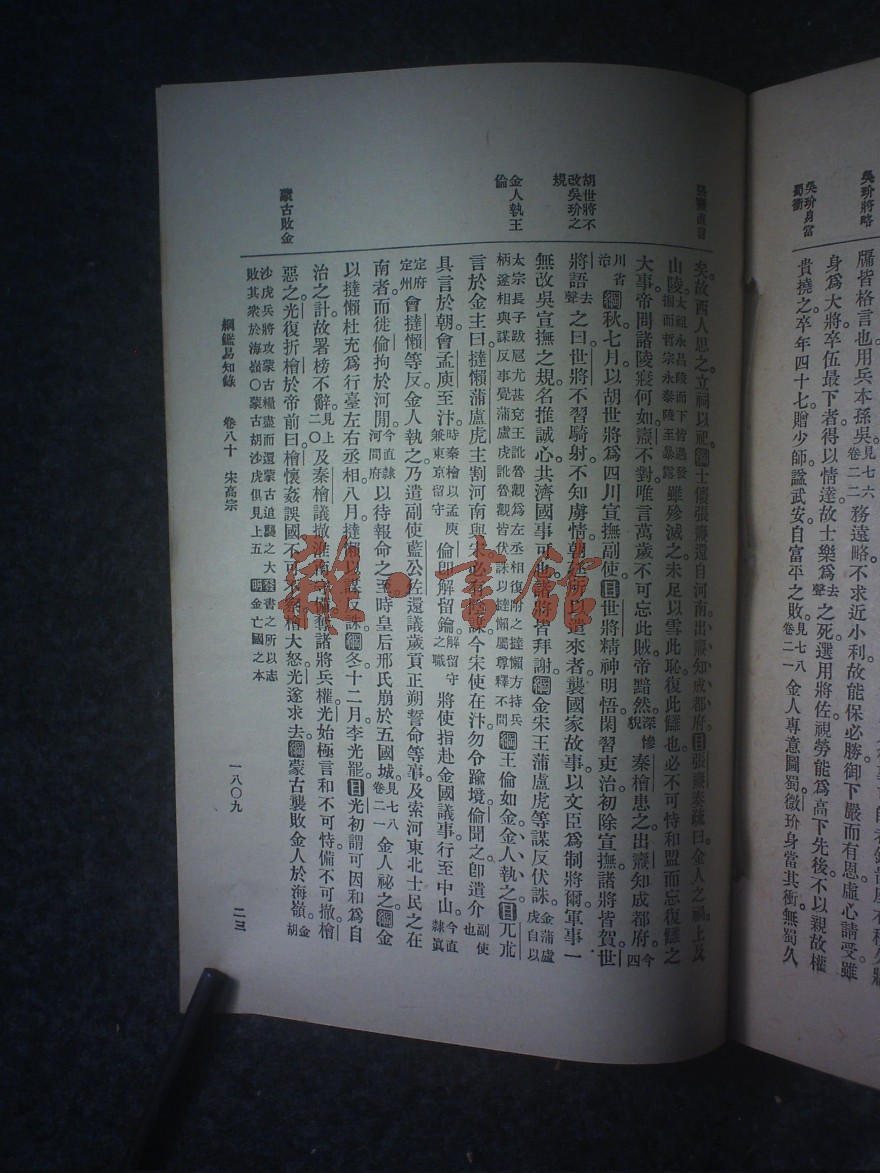 吳玠將略
吳玠身當蜀衝
牖皆格言也用兵本孫吳見七六卷二二務遠略不求近小利故能保必勝御下嚴而有恩虛心請受雖
身爲大將卒伍最下者得以情達故士樂爲去聲之死選用將佐視勞能爲高下先後不以親故權
貴撓之卒年四十七贈少師諡武安自富平之敗見七八卷二一金人專意圖蜀微玠身當其衝無蜀久
矣故西人思之立祠以祀綱士㒟張燾還自河南出燾知成都府目張燾奏疏曰金人之禍上及
山陵太祖永昌陵而下皆遇發掘而哲宗永泰陵至暴露雖殄滅之未足以雪此恥復此讎也必不可恃和盟而忘復讎之
大事帝問諸陵寢何如燾不對唯言萬歲不可忘此賊帝黯然深慘貌秦檜患之出燾知成都府今四
川省治綱秋七月以胡世將爲四川宣撫副使目世將精神明悟閑習吏治初除宣撫諸將皆賀世
將語去聲之曰世將不習騎射不知虜情朝廷所以遣來者襲國家故事以文臣爲制將爾軍事一
無改吳宣撫之規名推誠心共濟國事可也諸將皆拜謝綱金宋王蒲盧虎等謀反伏誅金蒲盧虎自以
太宗長子跋扈尤甚兗王訛魯觀爲左丞相復附之撻懶方持兵柄遂相與謀反事覺蒲盧虎訛魯觀皆伏誅以撻懶屬尊釋不問綱王倫如金金人執之目兀朮
言於金主曰撻懶蒲盧虎主割河南與宋必有陰謀今宋使在汴勿令踰境倫聞之卽遣介副使也
具言於朝會孟庾至汴時秦檜以孟庾兼東京留守倫卽解留鑰解留守之職將使指赴金國議事行至中山今直隸眞
定府定州會撻懶等反金人執之乃遣副使藍公佐還議歲貢正朔誓命等事及索河東北士民之在
南者而徙倫拘於河閒今直隸河間府以待報命之至時皇后邢氏崩於五國城見七八卷二一金人祕之綱金
以撻懶杜充爲行臺左右丞相八月撻懶以謀反誅綱冬十二月李光罷目光初謂可因和爲自
治之計故署榜不辭見上二〇及秦檜議撤淮南守備奪諸將兵權光始極言和不可恃備不可撤檜
惡之光復折檜於帝前曰檜懷姦誤國不可不察檜大怒光遂求去綱蒙古襲敗金人於海嶺金胡
沙虎兵將攻蒙古糧盡而還蒙古追襲之大敗其衆於海嶺〇蒙古胡沙虎俱見上五發明書之所以志金亡國之本
胡世將不改吳玠之規
金人執王倫
蒙古敗金
綱鑑易知錄 卷八十 宋高宗
一八〇九
二三
雜·書館